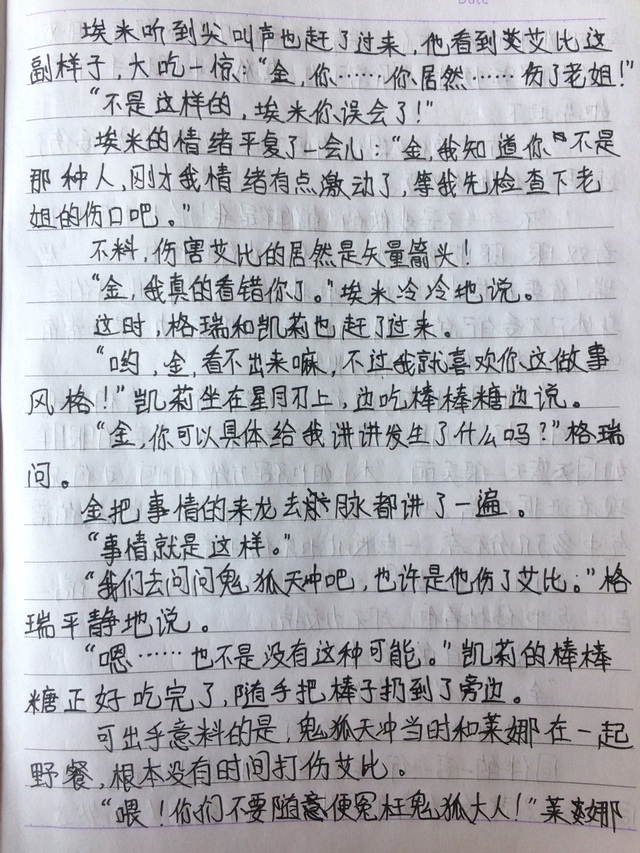 Date
埃米听到尖叫声也赶了过来，他看到艾比这
副样子，大吃一惊：“金，你……你居然……伤了老姐！”
“不是这样的，埃米你误会了！”
埃米的情绪平复了一会儿：“金，我知道你不是
那种人，刚才我情绪有点激动了，等我先检查下老
姐的伤口吧。”
不料，伤害艾比的居然是矢量箭头！
“金，我真的看错你了。”埃米冷冷地说。
这时，格瑞和凯莉也赶了过来。
“哟，金，看不出来嘛，不过我就喜欢你这做事
风格！”凯莉坐在星月刃上，边吃棒棒糖边说。
“金，你可以具体给我讲讲发生了什么吗？”格瑞
问。
金把事情的来龙去脉都讲了一遍。
“事情就是这样。”
“我们去问问鬼狐天冲吧，也许是他伤了艾比。”格
瑞平静地说。
“嗯……也不是没有这种可能。”凯莉的棒棒
糖正好吃完了，随手把棒子扔到了旁边。
可出乎意料的是，鬼狐天冲当时和莱娜在一起
野餐，根本没有时间打伤艾比。
“喂！你们不要随意便冤枉鬼狐大人！”莱娜